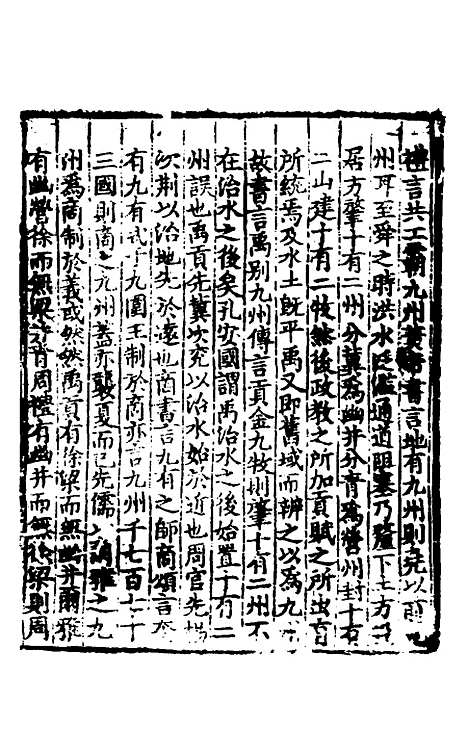 禮言共工霸九州黃帝書言地有九州則堯以前
州耳至舜之時洪水泛濫通道阻塞乃釐下土方
居方肇十有二州分冀爲幽并分青爲營州封十有
二山建十有二牧然後政教之所加貢賦之所出
所統焉及水土旣平禹又即舊域而辨之以爲九
故書言禹別九州傳言貢金九牧則肇十有二州不
在治水之後矣孔安國謂禹治水之後始置十有二
州誤也禹貢先冀次兖以治水始於近也周官先揚
次荆以治地先於遠也商書言九有之師商頌言
有九有式于九圍王制於商亦言九州千七百七十
三國則商之九州蓋亦襲夏而已先儒以爾雅之九
州爲商制於義或然然禹貢有徐梁而無幽并爾雅
有幽營徐而無梁青周禮有幽并而無徐梁則周